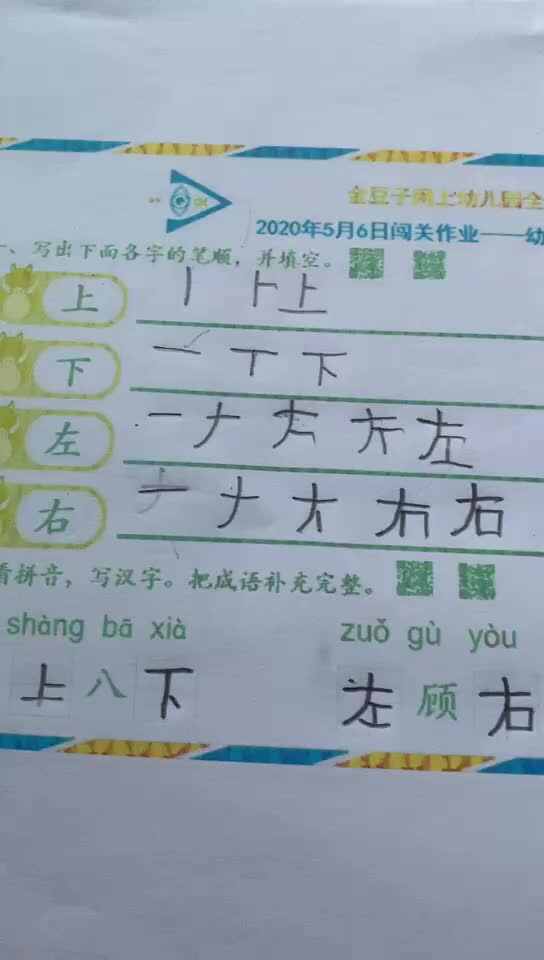 金豆子阁上幼儿园全
2020年5月6日闯关作业——幼
一、写出下面各字的笔顺，并填空。
上 丨 卜 上
下 一 丅 下
左 一 𠂇 左
右 一 𠂇 右
看拼音，写汉字。把成语补充完整。
shàng bā xià zuǒ gù yòu
上 八 下 左 顾 右